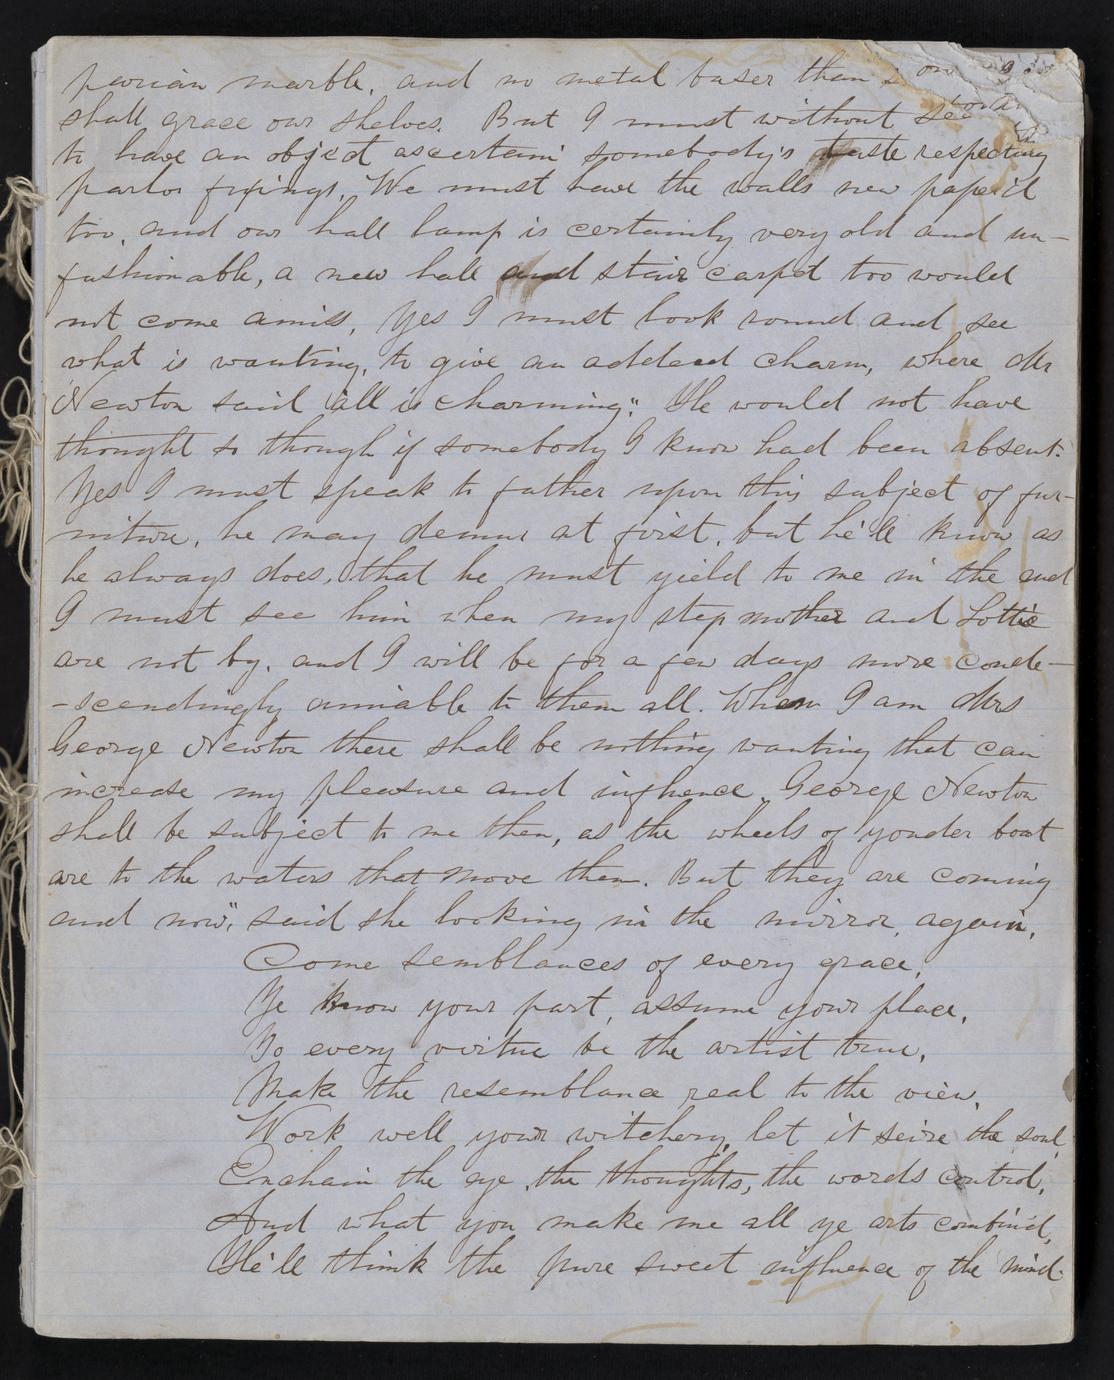 parian marble, and no metal baser than
shall grace our shelves. But I must without
to have an object ascertain somebody's taste respecting
parlor fixings. We must have the walls new paper'd
too, and our hall lamp is certainly very old and un-
fashionable, a new hall and stair carpet too would
not come amiss, Yes I must look round and see
what is wanting, to give an addeed charm, where Mr
Newton said "all is charming". He would not have
thought so though if somebody I know had been absent.
Yes I must speak to father upon this subject of fur-
niture, he may demur at first, but he'll know as
he always does, that he must yield to me in the end
I must see him when my step mother and Lottie
are not by, and I will be for a few days more conde-
-scendingly amiable to them all. When I am Mrs
George Newton there shall be nothing wanting that can
increase my pleasure and influence. George Newton
shall be subject to me then, as the wheels of yonder boat
are to the waters that move them. But they are coming
and now", said she looking in the mirror, again,
Come semblances of every grace,
Ye know your part, assume your place,
To every virtue be the artist true,
Make the resemblance real to the view,
Work well your witchery, let it seize the soul,
Enchain the eye, the thoughts, the words control,
And what you make me all ye arts combin'd,
He'll think the pure sweet influence of the mind.